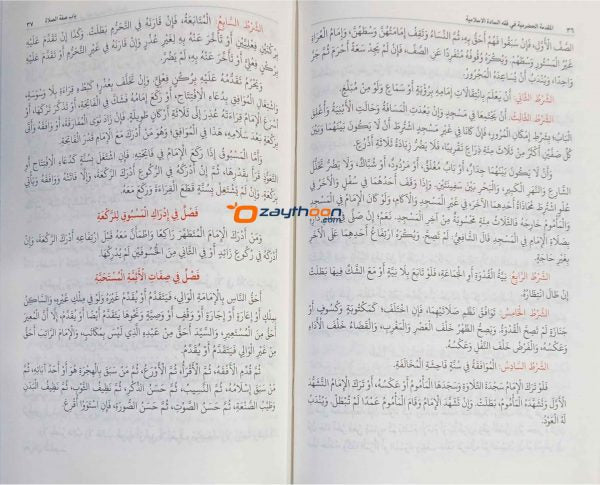 ٣٦ المقدمة الحضرمية في فقه السادة الشافعية
الصَّفِّ الأَوَّلِ، فَإِنْ سُبِقُوا فَهُمْ أَحَقُّ بِهِ ثُمَّ النِّسَاءُ وَتَقِفُ إِمَامَتُهُنَّ وَسْطَهُنَّ، وَإِمَامُ العُرَاةِ
غَيْرُ المَسْتُورِ وَسْطَهُمْ، وَيُكْرَهُ وُقُوفُهُ مُنْفَرِدًا عَنِ الصَّفِّ، فَإِنْ لَمْ يَجِدْ سَعَةً أَحْرَمَ ثُمَّ جَرَّ
وَاحِدًا، وَيُنْدَبُ أَنْ يُسَاعِدَهُ المَجْرُورُ.
الشَّرْطُ الثَّانِي: أَنْ يَعْلَمَ بِانْتِقَالَاتِ إِمَامِهِ بِرُؤْيَةٍ أَوْ سَمَاعٍ وَلَوْ مِنْ مُبَلِّغٍ.
الشَّرْطُ الثَّالِثُ: أَنْ يَجْتَمِعَا فِي مَسْجِدٍ وَإِنْ بَعُدَتِ المَسَافَةُ وَحَالَتِ الأَبْنِيَةُ وَأُغْلِقَ
البَابُ بِشَرْطِ إِمْكَانِ المُرُورِ، فَإِنْ كَانَا فِي غَيْرِ مَسْجِدٍ اشْتُرِطَ أَنْ لَا يَكُونَ بَيْنَهُمَا وَبَيْنَ
كُلِّ صَفَّيْنِ أَكْثَرُ مِنْ ثَلَاثِ مِئَةِ ذِرَاعٍ تَقْرِيبًا، فَلَا يَضُرُّ زِيَادَةُ ثَلَاثَةِ أَذْرُعٍ.
وَأَنْ لَا يَكُونَ بَيْنَهُمَا جِدَارٌ، أَوْ بَابٌ مُغْلَقٌ، أَوْ مَرْدُودٌ، أَوْ شُبَّاكٌ، وَلَا يَضُرُّ تَخَلُّلُ
الشَّارِعِ وَالنَّهْرِ الكَبِيرِ، وَالبَحْرِ بَيْنَ سَفِينَتَيْنِ. وَإِذَا وَقَفَ أَحَدُهُمَا فِي سُفْلٍ وَالآخَرُ فِي
عُلْوٍ اشْتُرِطَ مُحَاذَاةُ أَحَدِهِمَا الآخَرَ فِي غَيْرِ المَسْجِدِ وَالآكَامِ، وَلَوْ كَانَ الإِمَامُ فِي المَسْجِدِ
وَالمَأْمُومُ خَارِجَهُ فَالثَّلَاثُ مِئَةِ مَحْسُوبَةٌ مِنْ آخِرِ المَسْجِدِ. نَعَمْ إِنْ صَلَّى فِي
بِصَلَاةِ الإِمَامِ فِي المَسْجِدِ قَالَ الشَّافِعِيُّ: لَمْ تَصِحَّ. وَيُكْرَهُ ارْتِفَاعُ أَحَدِهِمَا عَلَى الآخَرِ
بِغَيْرِ حَاجَةٍ.
الشَّرْطُ الرَّابِعُ: نِيَّةُ القُدْوَةِ أَوِ الجَمَاعَةِ، فَلَوْ تَابَعَ بِلَا نِيَّةٍ أَوْ مَعَ الشَّكِّ فِيهَا بَطَلَتْ
إِنْ طَالَ انْتِظَارُهُ.
الشَّرْطُ الخَامِسُ: تَوَافُقُ نَظْمِ صَلَاتَيْهِمَا، فَإِنِ اخْتَلَفَ كَمَكْتُوبَةٍ وَكُسُوفٍ أَوْ
جَنَازَةٍ لَمْ تَصِحَّ القُدْوَةُ. وَيَصِحُّ الظُّهْرُ خَلْفَ العَصْرِ وَالمَغْرِبِ، وَالقَضَاءُ خَلْفَ الأَدَاءِ
وَعَكْسُهُ، وَالفَرْضُ خَلْفَ النَّفْلِ وَعَكْسُهُ.
الشَّرْطُ السَّادِسُ: المُوَافَقَةُ فِي سُنَّةٍ فَاحِشَةِ المُخَالَفَةِ.
فَلَوْ تَرَكَ الإِمَامُ سَجْدَةَ التِّلَاوَةِ وَسَجَدَهَا المَأْمُومُ أَوْ عَكْسُهُ، أَوْ تَرَكَ الإِمَامُ التَّشَهُّدَ
الأَوَّلَ وَتَشَهَّدَهُ المَأْمُومُ، بَطَلَتْ. وَإِنْ تَشَهَّدَ الإِمَامُ وَقَامَ المَأْمُومُ عَمْدًا لَمْ تَبْطُلْ. وَيُنْدَبُ
لَهُ العَوْدُ.
باب صفة الصلاة ٣٧
الشَّرْطُ السَّابِعُ: المُتَابَعَةُ، فَإِنْ قَارَنَهُ فِي التَّحَرُّمِ بَطَلَتْ. وَكَذَا إِنْ تَقَدَّمَ عَلَيْهِ
بِرُكْنَيْنِ فِعْلِيَّيْنِ أَوْ تَأَخَّرَ عَنْهُ بِهِمَا لِغَيْرِ عُذْرٍ وَإِنْ قَارَنَهُ فِي غَيْرِ التَّحَرُّمِ أَوْ تَقَدَّمَ عَلَيْهِ
بِرُكْنٍ فِعْلِيٍّ أَوْ تَأَخَّرَ عَنْهُ بِهِ، لَمْ يَضُرَّ.
وَيَحْرُمُ تَقَدُّمُهُ عَلَيْهِ بِرُكْنٍ فِعْلِيٍّ. وَإِنْ تَخَلَّفَ بِعُذْرٍ، كَبُطْءِ قِرَاءَةٍ بِلَا وَسْوَسَةٍ،
وَاشْتِغَالِ المُوَافِقِ بِدُعَاءِ الافْتِتَاحِ، أَوْ رَكَعَ إِمَامُهُ فَشَكَّ فِي الفَاتِحَةِ، أَوْ تَذَكَّرَ تَرْكَهَا، أَوْ
أَسْرَعَ الإِمَامُ قِرَاءَتَهُ عُذِرَ إِلَى ثَلَاثَةِ أَرْكَانٍ طَوِيلَةٍ. فَإِنْ زَادَ نَوَى المُفَارَقَةَ، أَوْ وَافَقَهُ وَأَتَى
بِرَكْعَةٍ بَعْدَ سَلَامِهِ، هَذَا فِي المُوَافِقِ؛ وَهُوَ مَنْ أَدْرَكَ مَعَ الإِمَامِ قَدْرَ الفَاتِحَةِ.
وَأَمَّا المَسْبُوقُ إِذَا رَكَعَ الإِمَامُ فِي فَاتِحَتِهِ، فَإِنِ اشْتَغَلَ بِسُنَّةٍ كَدُعَاءِ الافْتِتَاحِ أَوْ
التَّعَوُّذِ قَرَأَ بِقَدْرِهَا، ثُمَّ إِنْ أَدْرَكَهُ فِي الرُّكُوعِ أَدْرَكَ الرَّكْعَةَ، وَإِلَّا فَاتَتْهُ وَوَافَقَهُ وَيَأْتِي
بِرَكْعَةٍ. وَإِنْ لَمْ يَشْتَغِلْ بِسُنَّةٍ قَطَعَ القِرَاءَةَ وَرَكَعَ مَعَهُ.
فَصْلٌ فِي إِدْرَاكِ المَسْبُوقِ لِلرَّكْعَةِ
Ozaythoon.com
وَمَنْ أَدْرَكَ الإِمَامَ المُتَطَهِّرَ رَاكِعًا وَاطْمَأَنَّ مَعَهُ قَبْلَ ارْتِفَاعِهِ أَدْرَكَ الرَّكْعَةَ، وَإِنْ
أَدْرَكَهُ فِي رُكُوعٍ زَائِدٍ أَوْ فِي الثَّانِي مِنَ الخُسُوفَيْنِ لَمْ يُدْرِكْهَا.
فَصْلٌ فِي صِفَاتِ الأَئِمَّةِ المُسْتَحَبَّةِ
أَحَقُّ النَّاسِ بِالإِمَامَةِ الوَالِي، فَيَتَقَدَّمُ أَوْ يُقَدِّمُ غَيْرَهُ وَلَوْ فِي مِلْكِ غَيْرِهِ، وَالسَّاكِنُ
بِمِلْكٍ أَوْ إِعَارَةٍ أَوْ إِجَارَةٍ أَوْ وَقْفٍ أَوْ وَصِيَّةٍ وَنَحْوِهَا يَتَقَدَّمُ أَوْ يُقَدِّمُ أَيْضًا، إِلَّا أَنَّ المُعِيرَ
أَحَقُّ مِنَ المُسْتَعِيرِ، وَالسَّيِّدَ أَحَقُّ مِنْ عَبْدِهِ الَّذِي لَيْسَ بِمُكَاتَبٍ، وَالإِمَامُ الرَّاتِبُ أَحَقُّ
مِنْ غَيْرِ الوَالِي فَيَتَقَدَّمُ أَوْ يُقَدِّمُ.
ثُمَّ قُدِّمَ الأَفْقَهُ، ثُمَّ الأَقْرَأُ، ثُمَّ الأَوْرَعُ، ثُمَّ مَنْ سَبَقَ بِالهِجْرَةِ هُوَ أَوْ أَحَدُ آبَائِهِ، ثُمَّ
مَنْ سَبَقَ إِسْلَامُهُ، ثُمَّ النَّسِيبُ، ثُمَّ حَسَنُ الذِّكْرِ، ثُمَّ نَظِيفُ الثَّوْبِ، ثُمَّ نَظِيفُ البَدَنِ
وَطَيِّبُ الصَّنْعَةِ، ثُمَّ حَسَنُ الصَّوْتِ، ثُمَّ حَسَنُ الصُّورَةِ، فَإِنِ اسْتَوَوْا أُقْرِعَ.